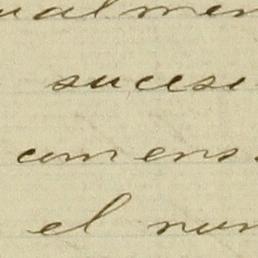 ualmen
sucesi
com ens
el nun